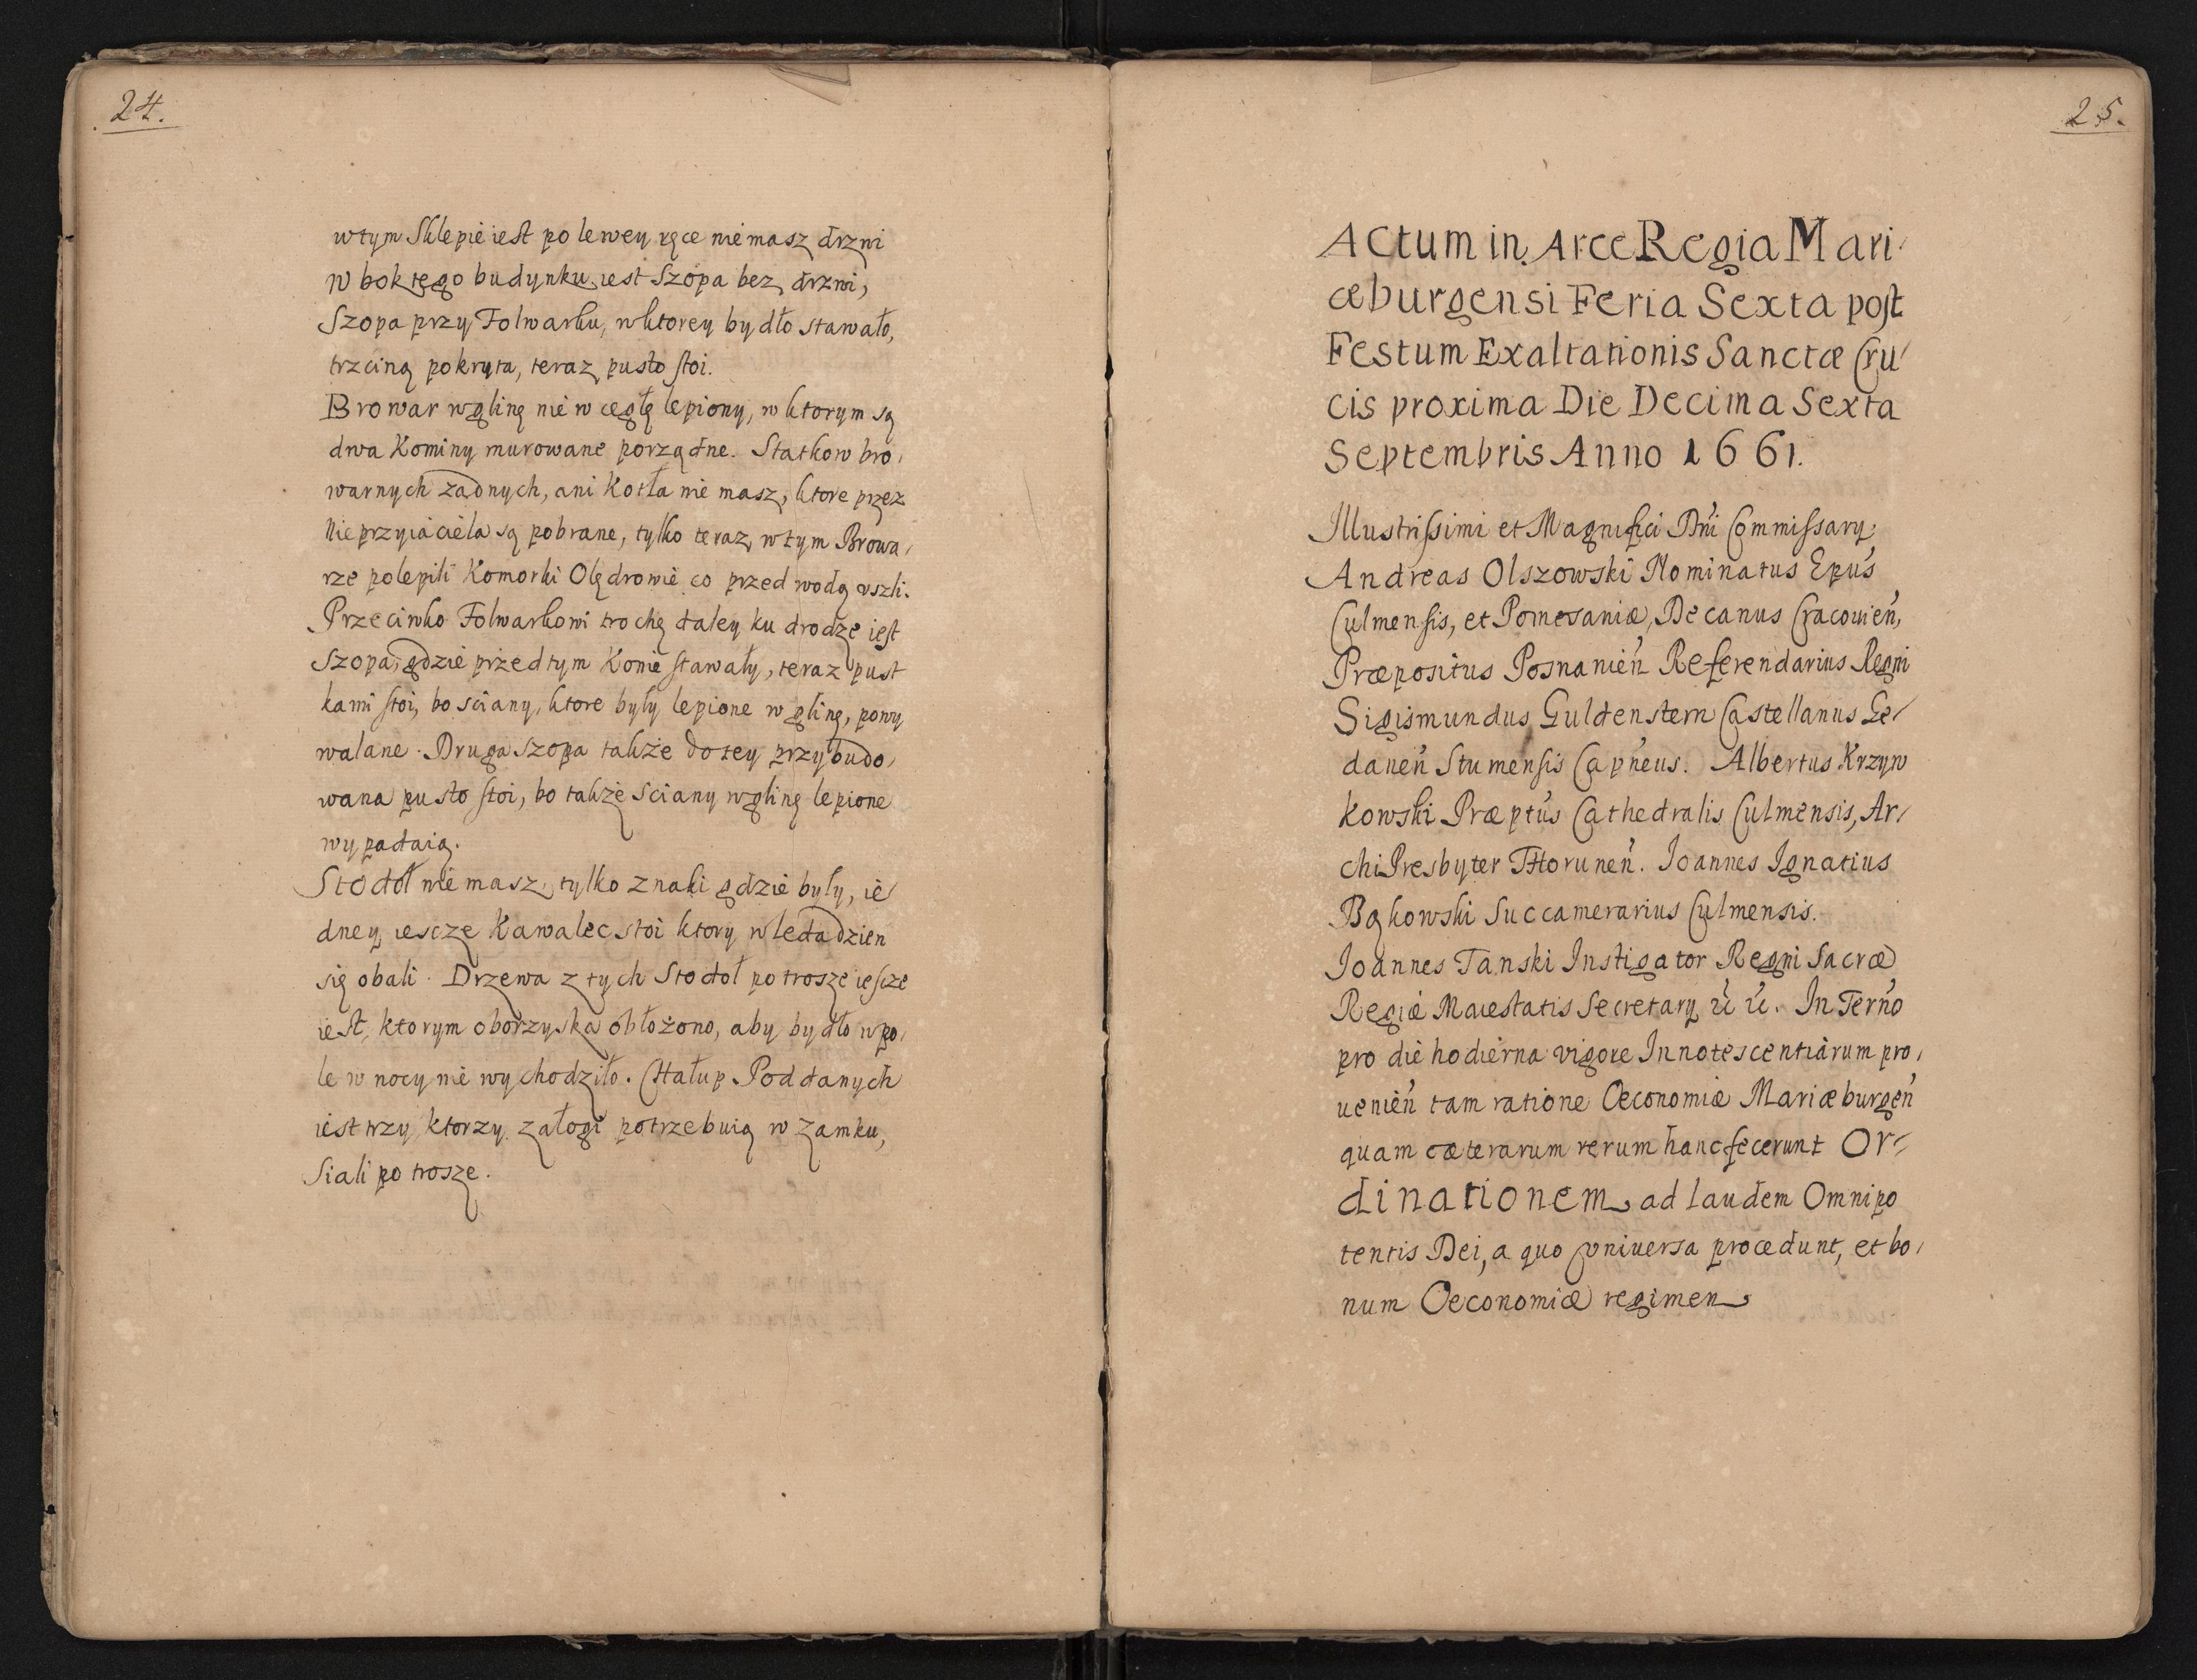 24.
wtym Sklepie iest po lewey ręce niemasz drzwi
w bok tego budynku iest Szopa bez drzwi,
Szopa przy Folwarku, wktorey bydło stawało,
trzciną pokryta, teraz pusto stoi.
Browar wglinę nie w cegłę lepiony, w ktorym są
dwa Kominy murowane porządne. Statkow bro,
warnych żadnych, ani Kotła nie masz, ktore przez
Nieprzyiaciela są pobrane, tylko teraz wtym Browa,
rze polepili Komorki Olędrowie co przed wodą vszli.
Przeciwko Folwarkowi trochę daley ku drodze iest
Szopa, gdzie przedtym Konie stawały, teraz pust
kami stoi, bo sciany, ktore były lepione w glinę, powy
walane. Druga szopa także do tey przybudo,
wana pusto stoi, bo także sciany wglinę lepione
wypadaią.
Stodoł nie masz, tylko znaki gdzie były, ie/
dney iescze Kawalec stoi ktory wleda dzien
się obali. Drzewa z tych Stodoł po trosze iescze
iest, ktorym oborzyska obłożono, aby bydło wpo,
le w nocy nie wychodziło. Chałup Poddanych
iest trzy, ktorzy załogi potrzebuią w zamku,
Siali po trosze.
25.
Actum in Arce Regia Mari/
æburgensi Feria Sexta post
Festum Exaltationis Sanctæ Cru/
cis proxima Die Decima Sexta
Septembris Anno 1661.
Illustrissimi et Magnifici Dni Commissarÿ
Andreas Olszowski Nominatus Epus
Culmensis, et Pomesaniæ, Decanus Cracouien,
Præpositus Posnanien Referendarius Regni
Sigismundus Guldenstern Castellanus Ge/
danen Stumensis Capneus. Albertus Krzyw
kowski Præptus Cathedralis Culmensis, Ar/
chiPresbyter THorunen. Ioannes Ignatius
Bąkowski Succamerarius Culmensis.
Ioannes Tanski Instigator Regni Sacræ
Regiæ Maiestatis Secretarÿ ú ú. In Terno
pro die hodierna vigore Innotescentiarum pro,
uenien tam ratione Oeconomiæ Mariæburgen
quam cæterarum rerum hanc fecerunt Or/
dinationem ad laudem Omnipo
tentis Dei, a quo vniuersa procedunt, et bo,
num Oeconomiæ regimen